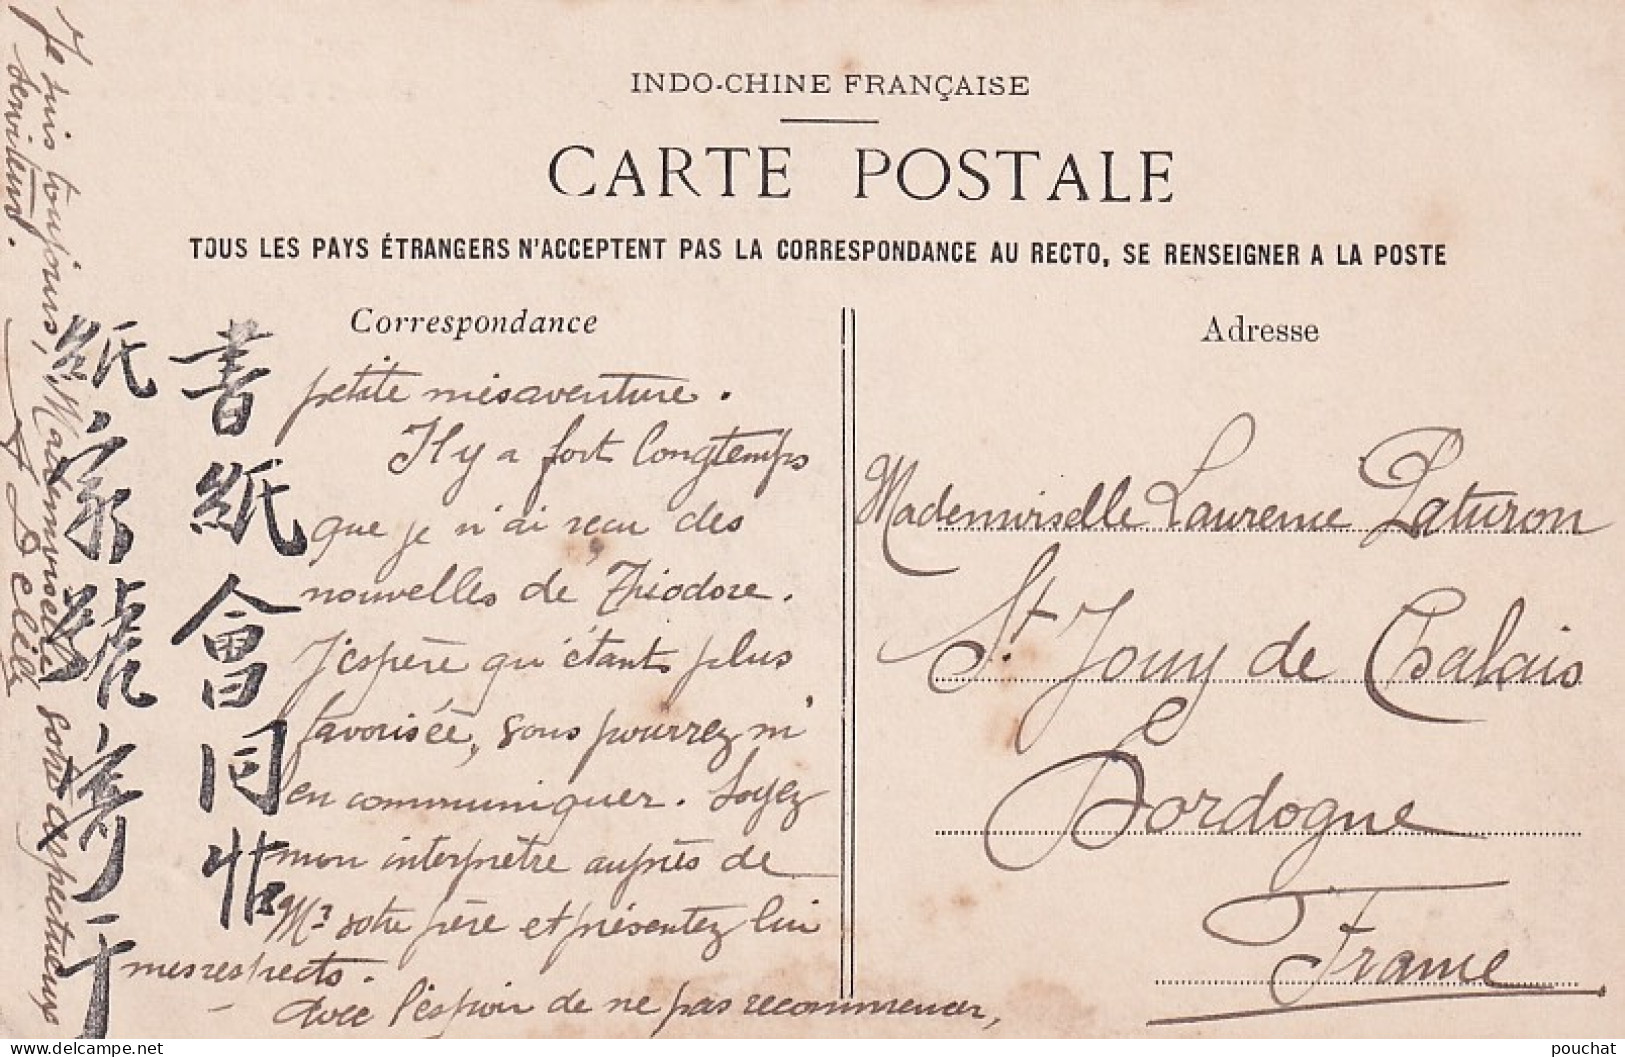 INDO-CHINE FRANÇAISE
CARTE POSTALE
TOUS LES PAYS ÉTRANGERS N'ACCEPTENT PAS LA CORRESPONDANCE AU RECTO, SE RENSEIGNER A LA POSTE
Correspondance
petite mésaventure.
Il y a fort longtemps
que je n'ai reçu des
nouvelles de Théodore.
J'espère qu'étant plus
favorisée, vous pourrez m'
en communiquer. Soyez
mon interprètre auprès de
Mr votre père et présentez lui
mes respects.
- Avec l'espoir de ne pas recommencer,
Je suis toujours, Mademoiselle, votre respectueux
serviteur.
書紙會同
紙家號
Adresse
Mademoiselle Laurence Paturon
St Jouy de Chalais
Dordogne
France
pouchat